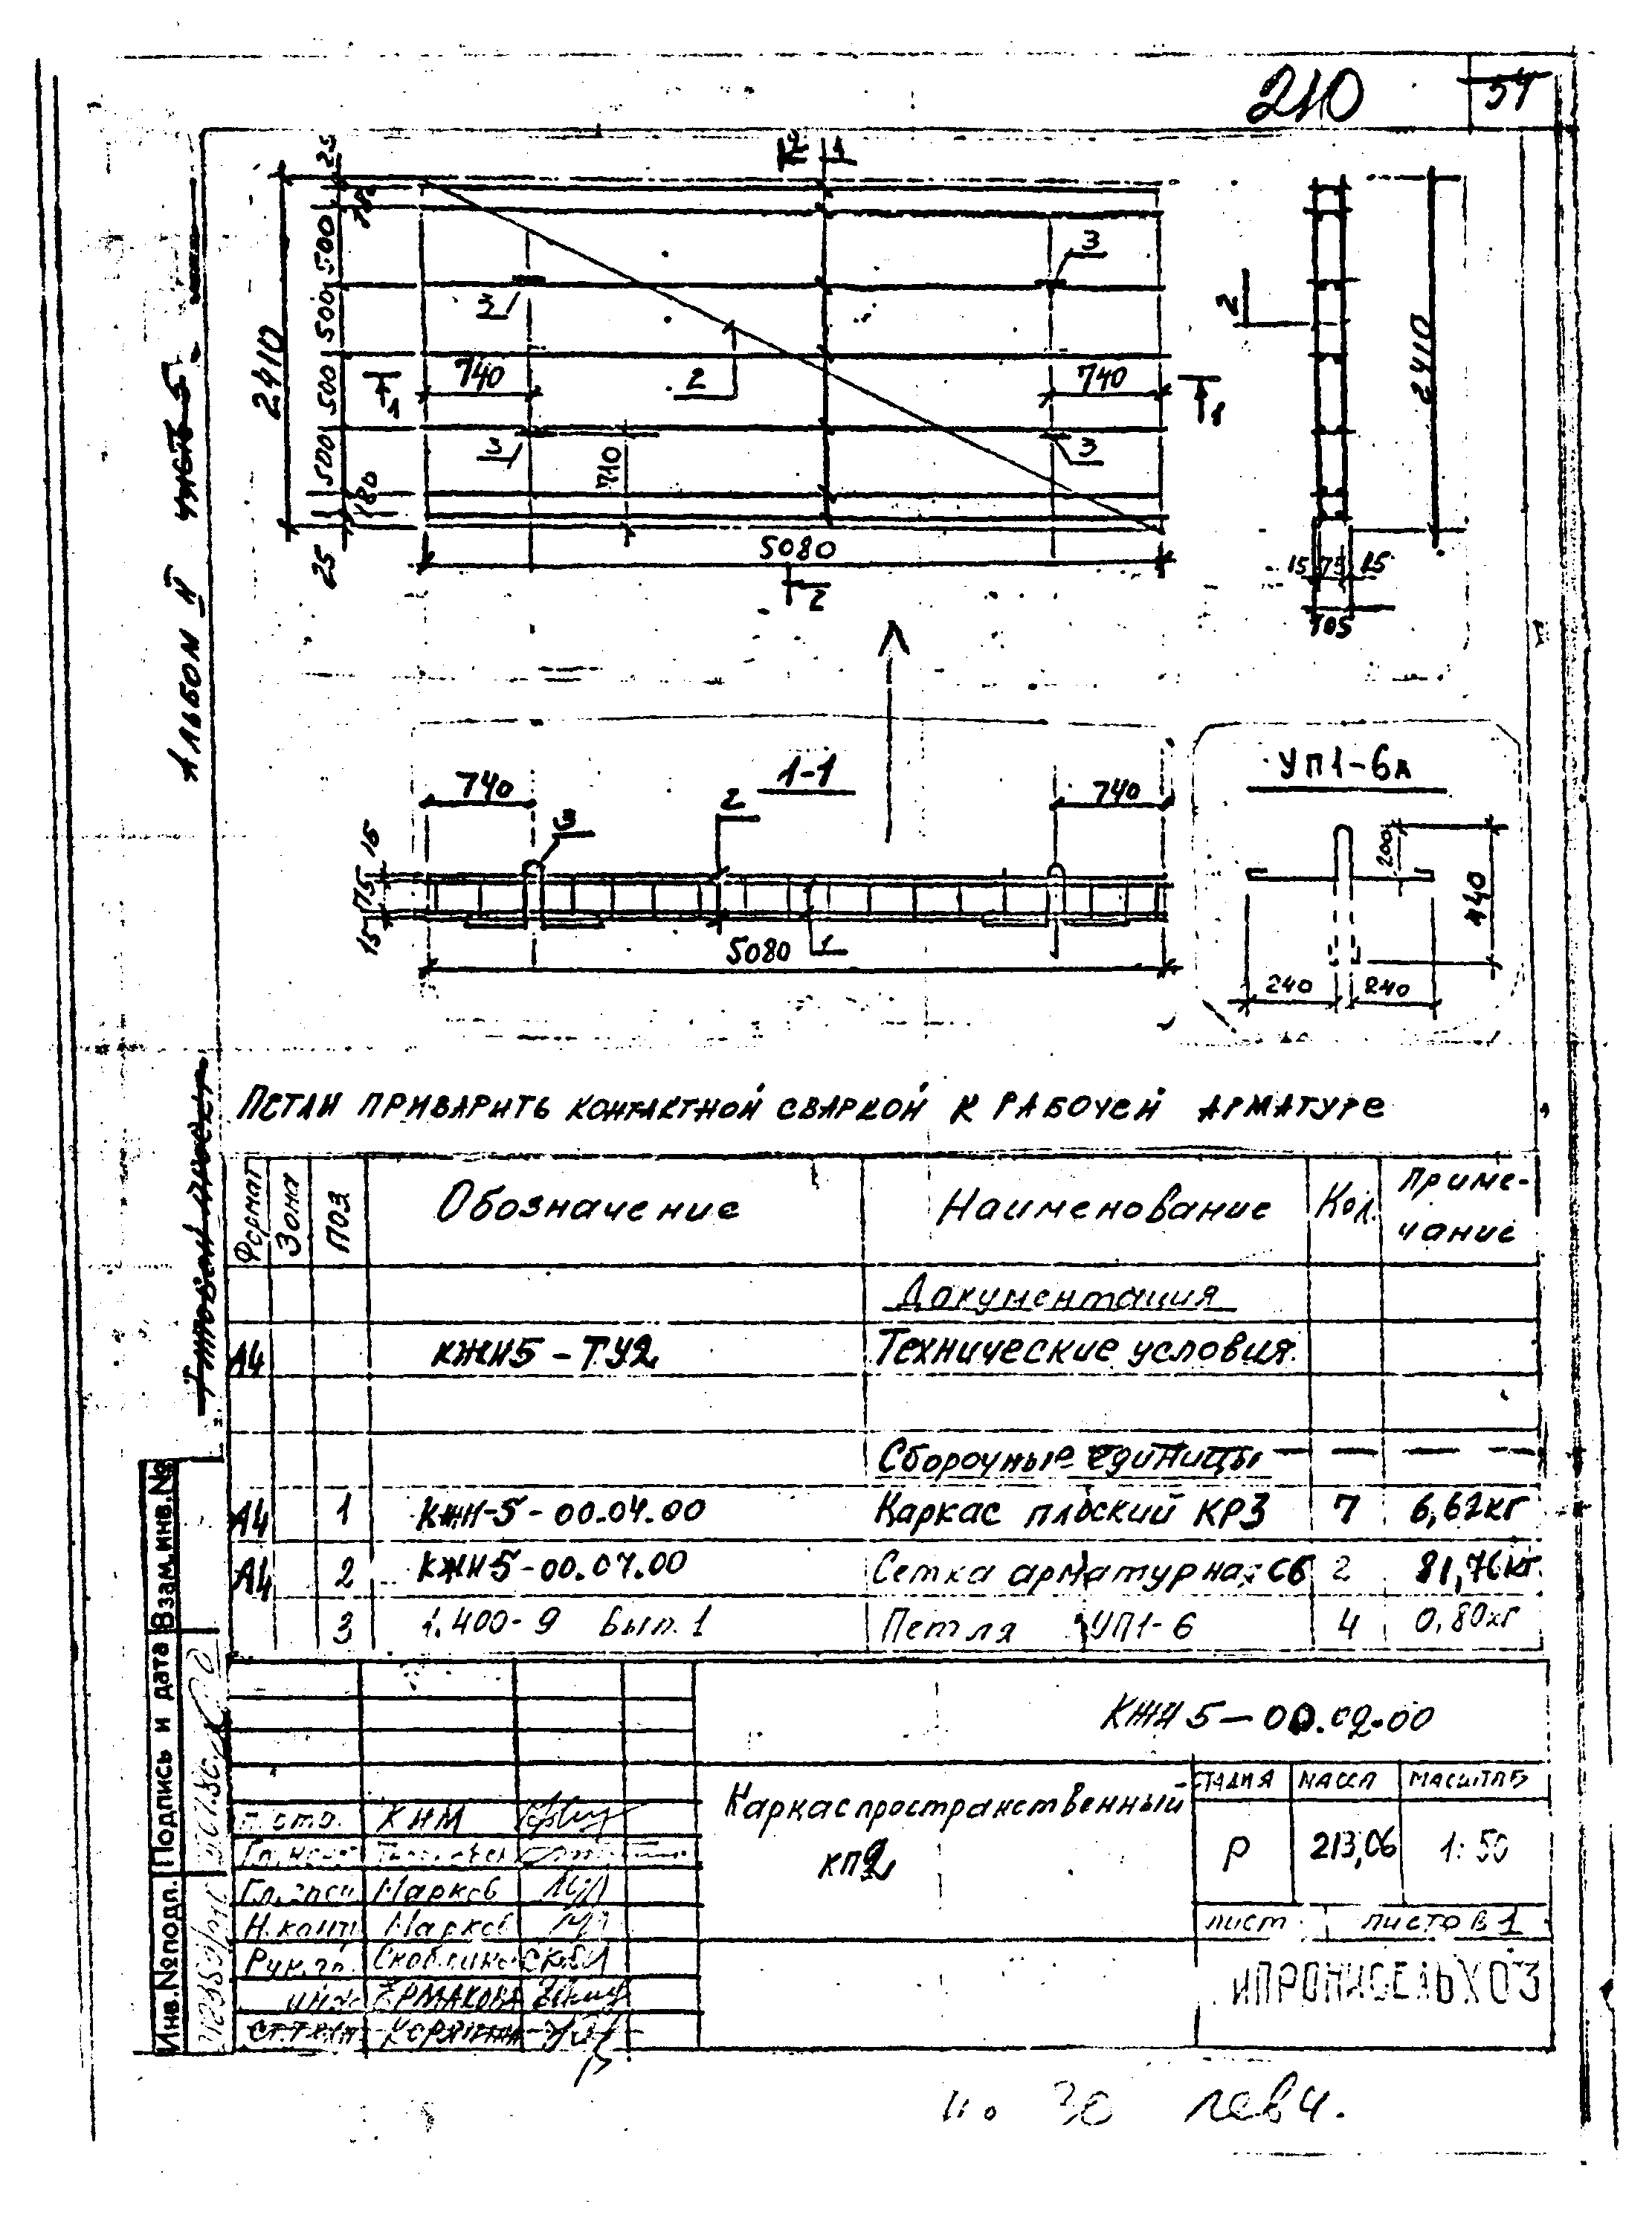 210
54
Альбом II часть 5
Типовой проект
2 1
25
180
500
500
500
500
180
25
2410
3
3
740
2
740
1
1
3
3
710
5080
2
2
2410
15 75 15
105
1-1
740
2
740
3
15
75
15
5080
1
УП1-6А
200
440
240
240
Петли приварить контактной сваркой к рабочей арматуре
Формат Зона Поз Обозначение Наименование Кол. Приме-
чание
Документация
А4 КЖИ5-ТУ2 Технические условия
Сборочные единицы
А4 1 КЖИ-5-00.04.00 Каркас плоский КР3 7 6,62кг
А4 2 КЖИ5-00.07.00 Сетка арматурная С6 2 81,76кг
3 1.400-9 Вып. 1 Петля УП1-6 4 0,80кг
КЖИ5-00.02.00
Каркас пространственный
КП2
Стадия Масса Масштаб
Р 213,06 1:50
Лист Листов 1
ИПРОНИСЕЛЬХОЗ
Гл. Марков
Н.конт Марков
Рук.гр.
инж Ермакова
ст.техн
Инв.№подл. Подпись и дата Взам.инв.№
30